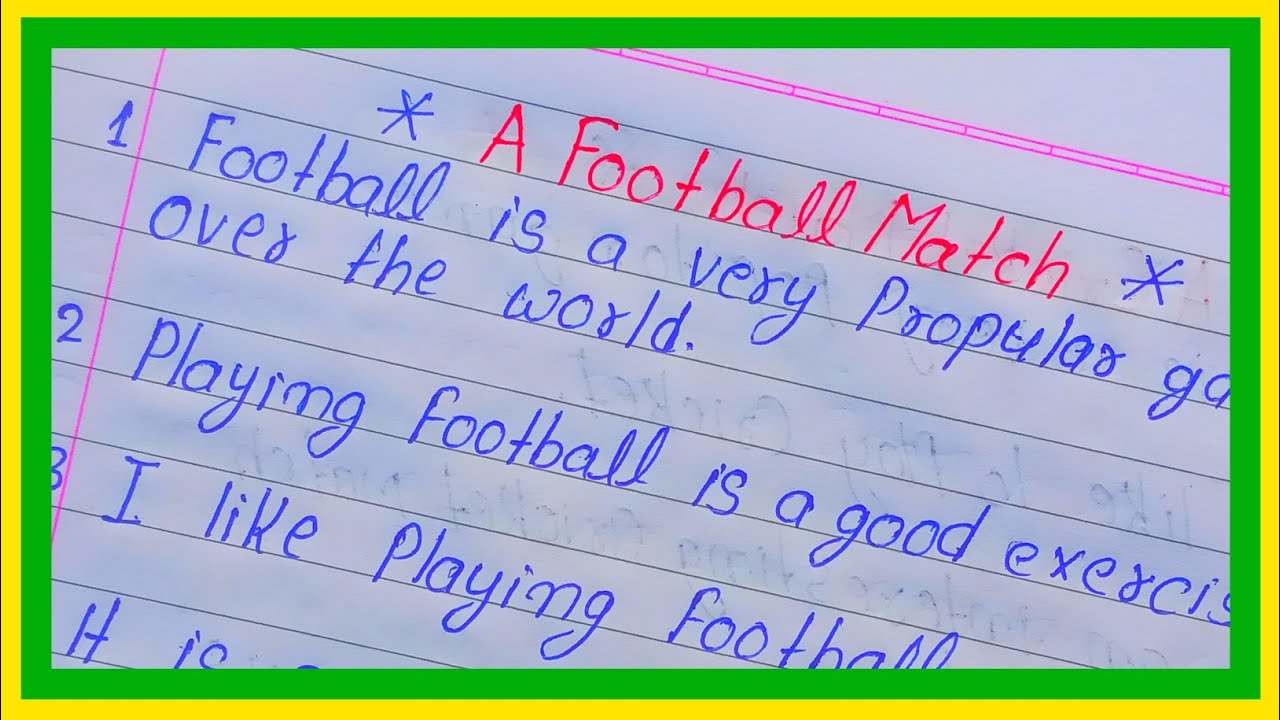 * A Football Match *
1 Football is a very Propular ga
over the world.
2 Playing football is a good exercis
3 I like Playing football
It is